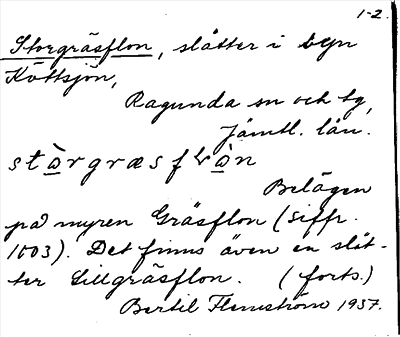 1-2.
Storgräsflon, slåtter i byn
Köttsjön,
Ragunda sn och tg,
Jämtl. län.
Belägen
på myren Gräsflön (siffr.
1003). Det finns även en slåt-
ter Lillgräsflon. (forts.)
Bertil Flemström 1957.